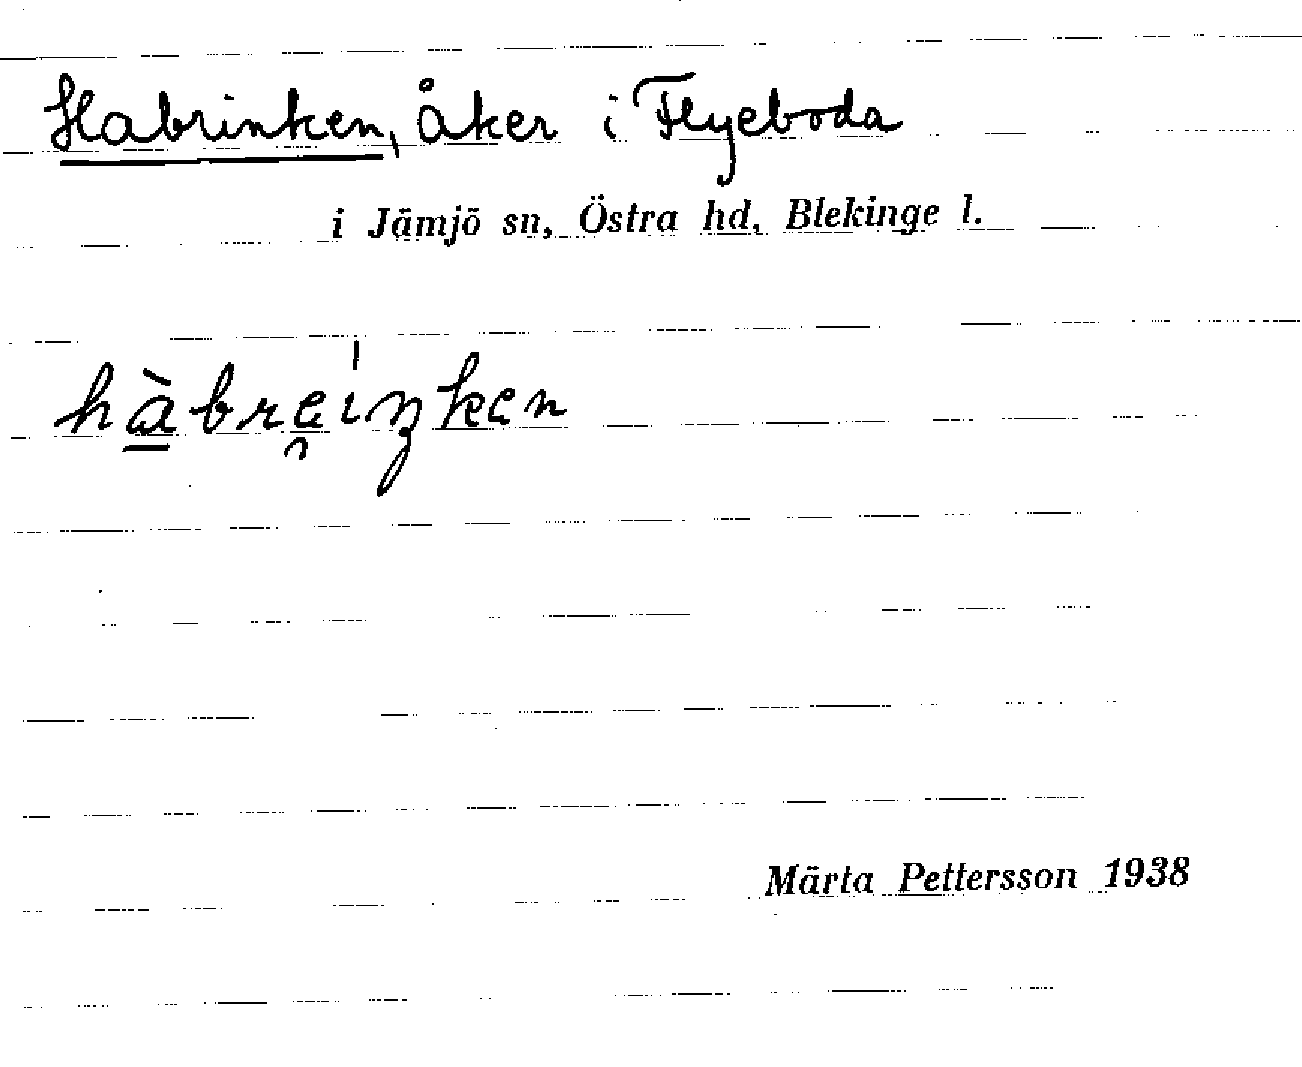 Habrinken, åker i Flyeboda
i Jämjö sn, Östra hd, Blekinge l.
hàbreinken
Märta Pettersson 1938